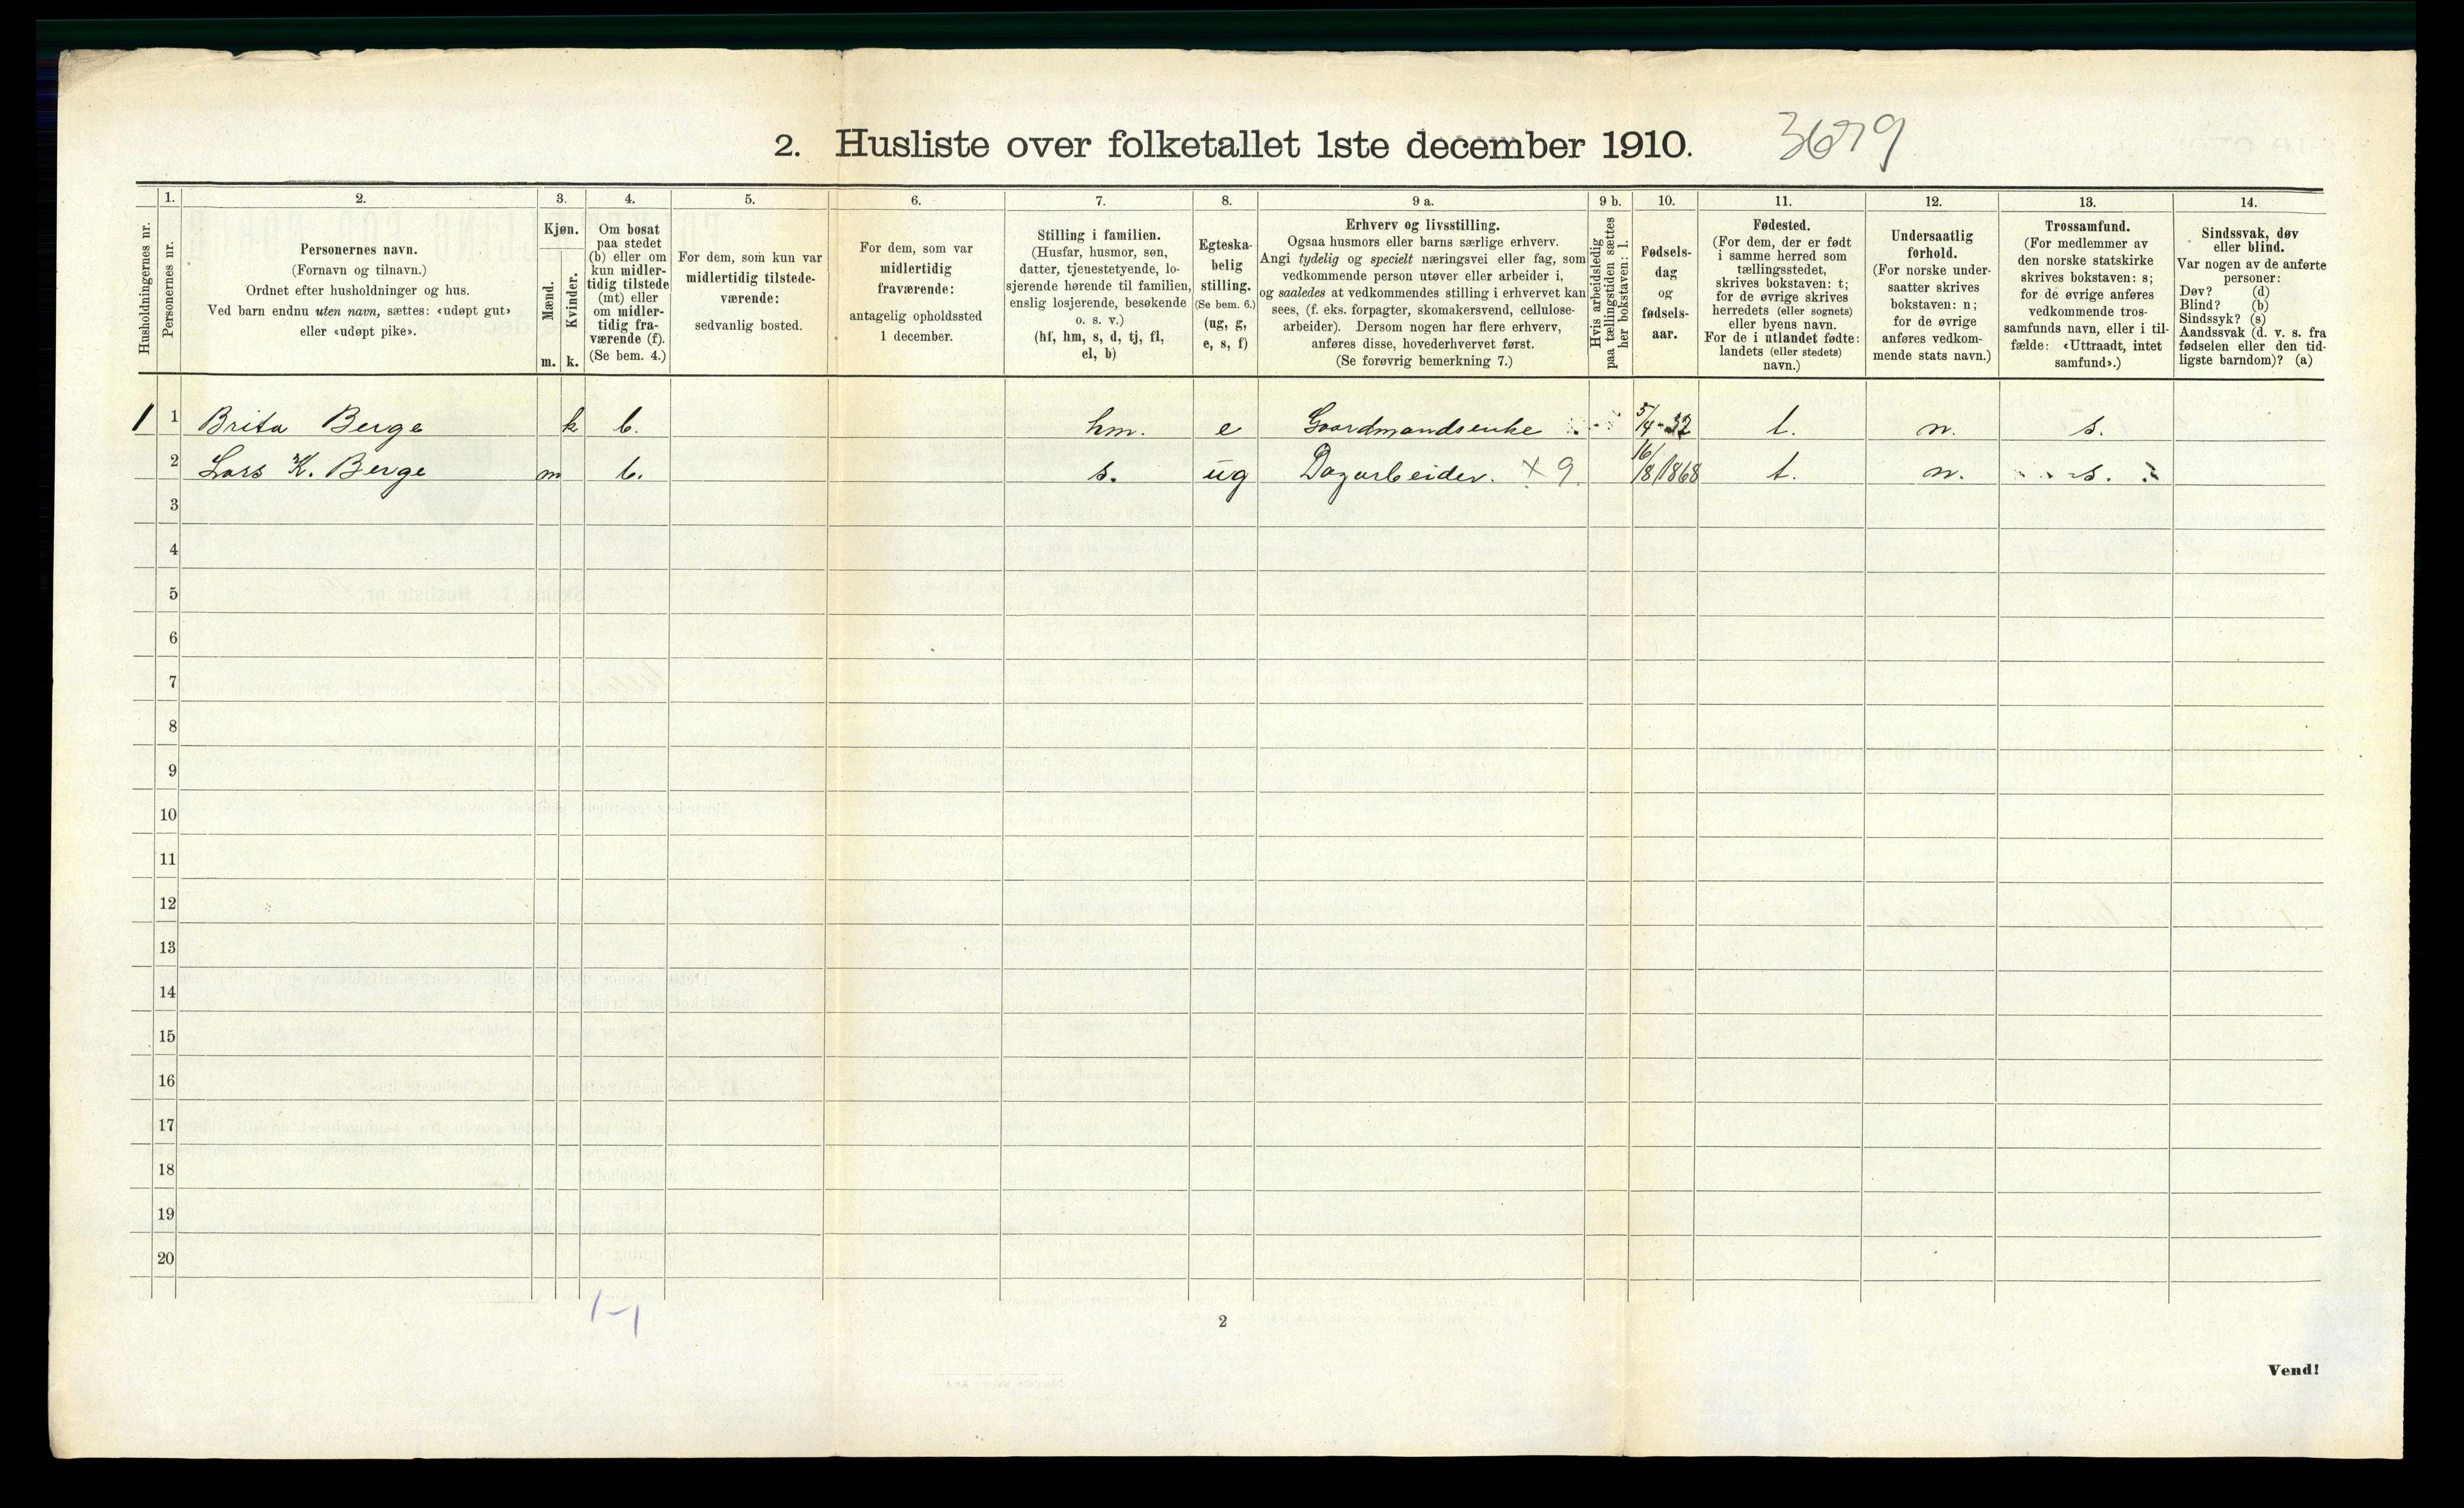 2. Husliste over folketallet 1ste december 1910. 3679
Husholdningernes nr.
1. Personernes nr.
2. Personernes navn.
(Fornavn og tilnavn.)
Ordnet efter husholdninger og hus.
Ved barn endnu uten navn, sættes: «udøpt gut»
eller «udøpt pike».
3. Kjøn.
Mænd. Kvinder.
m. k.
4. Om bosat
paa stedet
(b) eller om
kun midler-
tidig tilstede
(mt) eller
om midler-
tidig fra-
værende (f).
(Se bem. 4.)
5. For dem, som kun var
midlertidig tilstede-
værende:
sedvanlig bosted.
6. For dem, som var
midlertidig
fraværende:
antagelig opholdssted
1 december.
7. Stilling i familien.
(Husfar, husmor, søn,
datter, tjenestetyende, lo-
sjerende hørende til familien,
enslig losjerende, besøkende
o. s. v.)
(hf, hm, s, d, tj, fl,
el, b)
8. Egteska-
belig
stilling.
(Se bem. 6.)
(ug, g,
e, s, f)
9 a. Erhverv og livsstilling.
Ogsaa husmors eller barns særlige erhverv.
Angi tydelig og specielt næringsvei eller fag, som
vedkommende person utøver eller arbeider i,
og saaledes at vedkommendes stilling i erhvervet kan
sees, (f. eks. forpagter, skomakersvend, cellulose-
arbeider). Dersom nogen har flere erhverv,
anføres disse, hovederhvervet først.
(Se forøvrig bemerkning 7.)
9 b. Hvis arbeidsledig
paa tællingstiden sættes
her bokstaven: l.
10. Fødsels-
dag
og
fødsels-
aar.
11. Fødested.
(For dem, der er født
i samme herred som
tællingsstedet,
skrives bokstaven: t;
for de øvrige skrives
herredets (eller sognets)
eller byens navn.
For de i utlandet fødte:
landets (eller stedets)
navn.)
12. Undersaatlig
forhold.
(For norske under-
saatter skrives
bokstaven: n;
for de øvrige
anføres vedkom-
mende stats navn.)
13. Trossamfund.
(For medlemmer av
den norske statskirke
skrives bokstaven: s;
for de øvrige anføres
vedkommende tros-
samfunds navn, eller i til-
fælde: «Uttraadt, intet
samfund».)
14. Sindssvak, døv
eller blind.
Var nogen av de anførte
personer:
Døv? (d)
Blind? (b)
Sindssyk? (s)
Aandssvak (d. v. s. fra
fødselen eller den tid-
ligste barndom)? (a)
1 1 Brita Berge k b. hm. e Gaardmandsenke 5/4-32 t. n. s.
2 Lars K. Berge m b. s. ug Dagarbeider. X 9. 16/8 1868 t. n. s.
3
4
5
6
7
8
9
10
11
12
13
14
15
16
17
18
19
20
1-1
2
Vend!